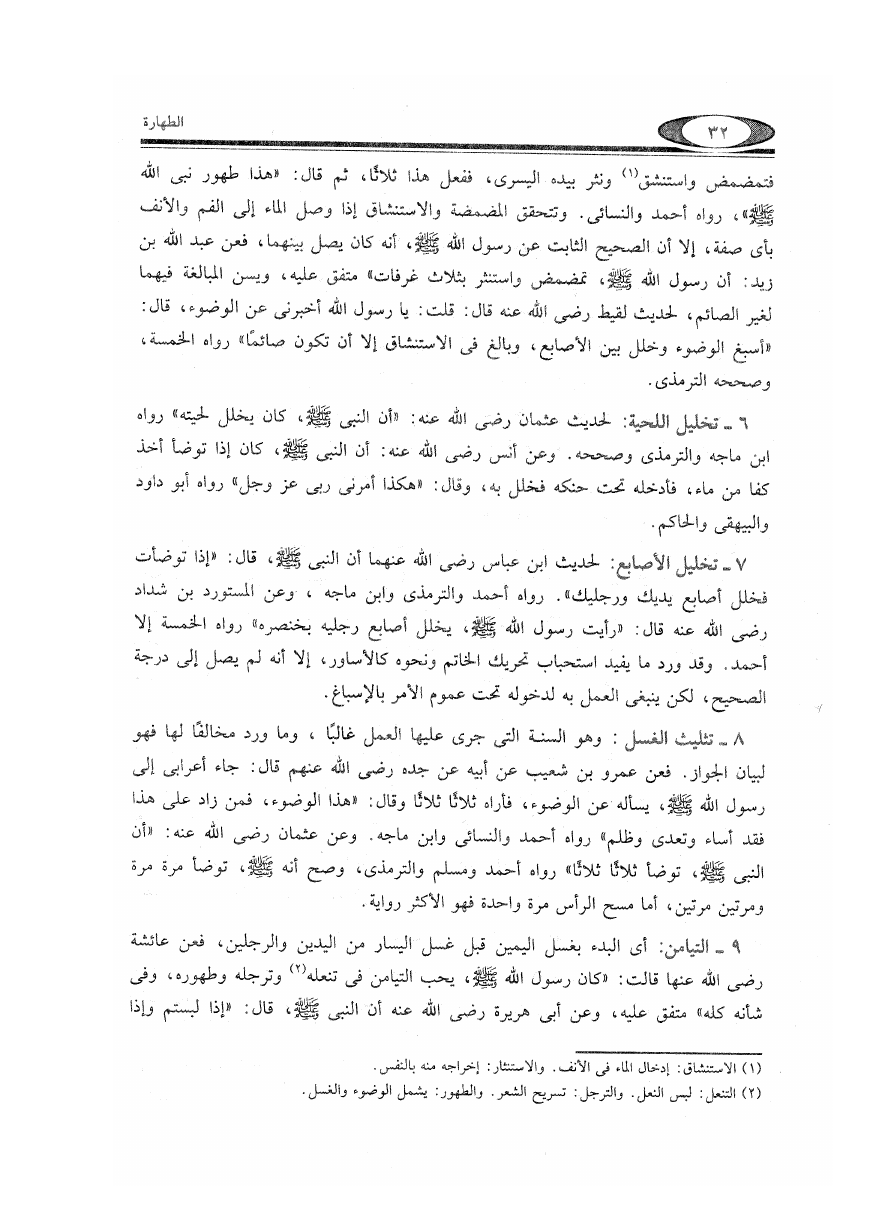 الطهارة
٣٢
فتمضمض واستنشق(١) ونثر بيده اليسرى، ففعل هذا ثلاثًا، ثم قال: «هذا طهور نبى الله
ﷺ»، رواه أحمد والنسائى. وتتحقق المضمضة والاستنشاق إذا وصل الماء إلى الفم والأنف
بأى صفة، إلا أن الصحيح الثابت عن رسول الله ﷺ، أنه كان يصل بينهما، فعن عبد الله بن
زيد: أن رسول الله ﷺ، تمضمض واستنثر بثلاث غرفات» متفق عليه، ويسن المبالغة فيهما
لغير الصائم، لحديث لقيط رضى الله عنه قال: قلت: يا رسول الله أخبرنى عن الوضوء، قال:
«أسبغ الوضوء وخلل بين الأصابع، وبالغ فى الاستنشاق إلا أن تكون صائمًا» رواه الخمسة،
وصححه الترمذى.
٦ ـ تخليل اللحية: لحديث عثمان رضى الله عنه: «أن النبى ﷺ، كان يخلل لحيته» رواه
ابن ماجه والترمذى وصححه. وعن أنس رضى الله عنه: أن النبى ﷺ، كان إذا توضأ أخذ
كفا من ماء، فأدخله تحت حنكه فخلل به، وقال: «هكذا أمرنى ربى عز وجل» رواه أبو داود
والبيهقى والحاكم.
٧ ـ تخليل الأصابع: لحديث ابن عباس رضى الله عنهما أن النبى ﷺ، قال: «إذا توضأت
فخلل أصابع يديك ورجليك». رواه أحمد والترمذى وابن ماجه ، وعن المستورد بن شداد
رضى الله عنه قال: «رأيت رسول الله ﷺ، يخلل أصابع رجليه بخنصره» رواه الخمسة إلا
أحمد. وقد ورد ما يفيد استحباب تحريك الخاتم ونحوه كالأساور، إلا أنه لم يصل إلى درجة
الصحيح، لكن ينبغى العمل به لدخوله تحت عموم الأمر بالإسباغ.
٨ ـ تثليث الغسل : وهو السنة التى جرى عليها العمل غالبًا ، وما ورد مخالفًا لها فهو
لبيان الجواز. فعن عمرو بن شعيب عن أبيه عن جده رضى الله عنهم قال: جاء أعرابى إلى
رسول الله ﷺ، يسأله عن الوضوء، فأراه ثلاثًا ثلاثًا وقال: «هذا الوضوء، فمن زاد على هذا
فقد أساء وتعدى وظلم» رواه أحمد والنسائى وابن ماجه. وعن عثمان رضى الله عنه: «أن
النبى ﷺ، توضأ ثلاثًا ثلاثًا» رواه أحمد ومسلم والترمذى، وصح أنه ﷺ، توضأ مرة مرة
ومرتين مرتين، أما مسح الرأس مرة واحدة فهو الأكثر رواية.
٩ ـ التيامن: أى البدء بغسل اليمين قبل غسل اليسار من اليدين والرجلين، فعن عائشة
رضى الله عنها قالت: «كان رسول الله ﷺ، يحب التيامن فى تنعله(٢) وترجله وطهوره، وفى
شأنه كله» متفق عليه، وعن أبى هريرة رضى الله عنه أن النبى ﷺ، قال: «إذا لبستم وإذا
(١) الاستنشاق: إدخال الماء فى الأنف. والاستنثار: إخراجه منه بالنفس.
(٢) التنعل: لبس النعل. والترجل: تسريح الشعر. والطهور: يشمل الوضوء والغسل.